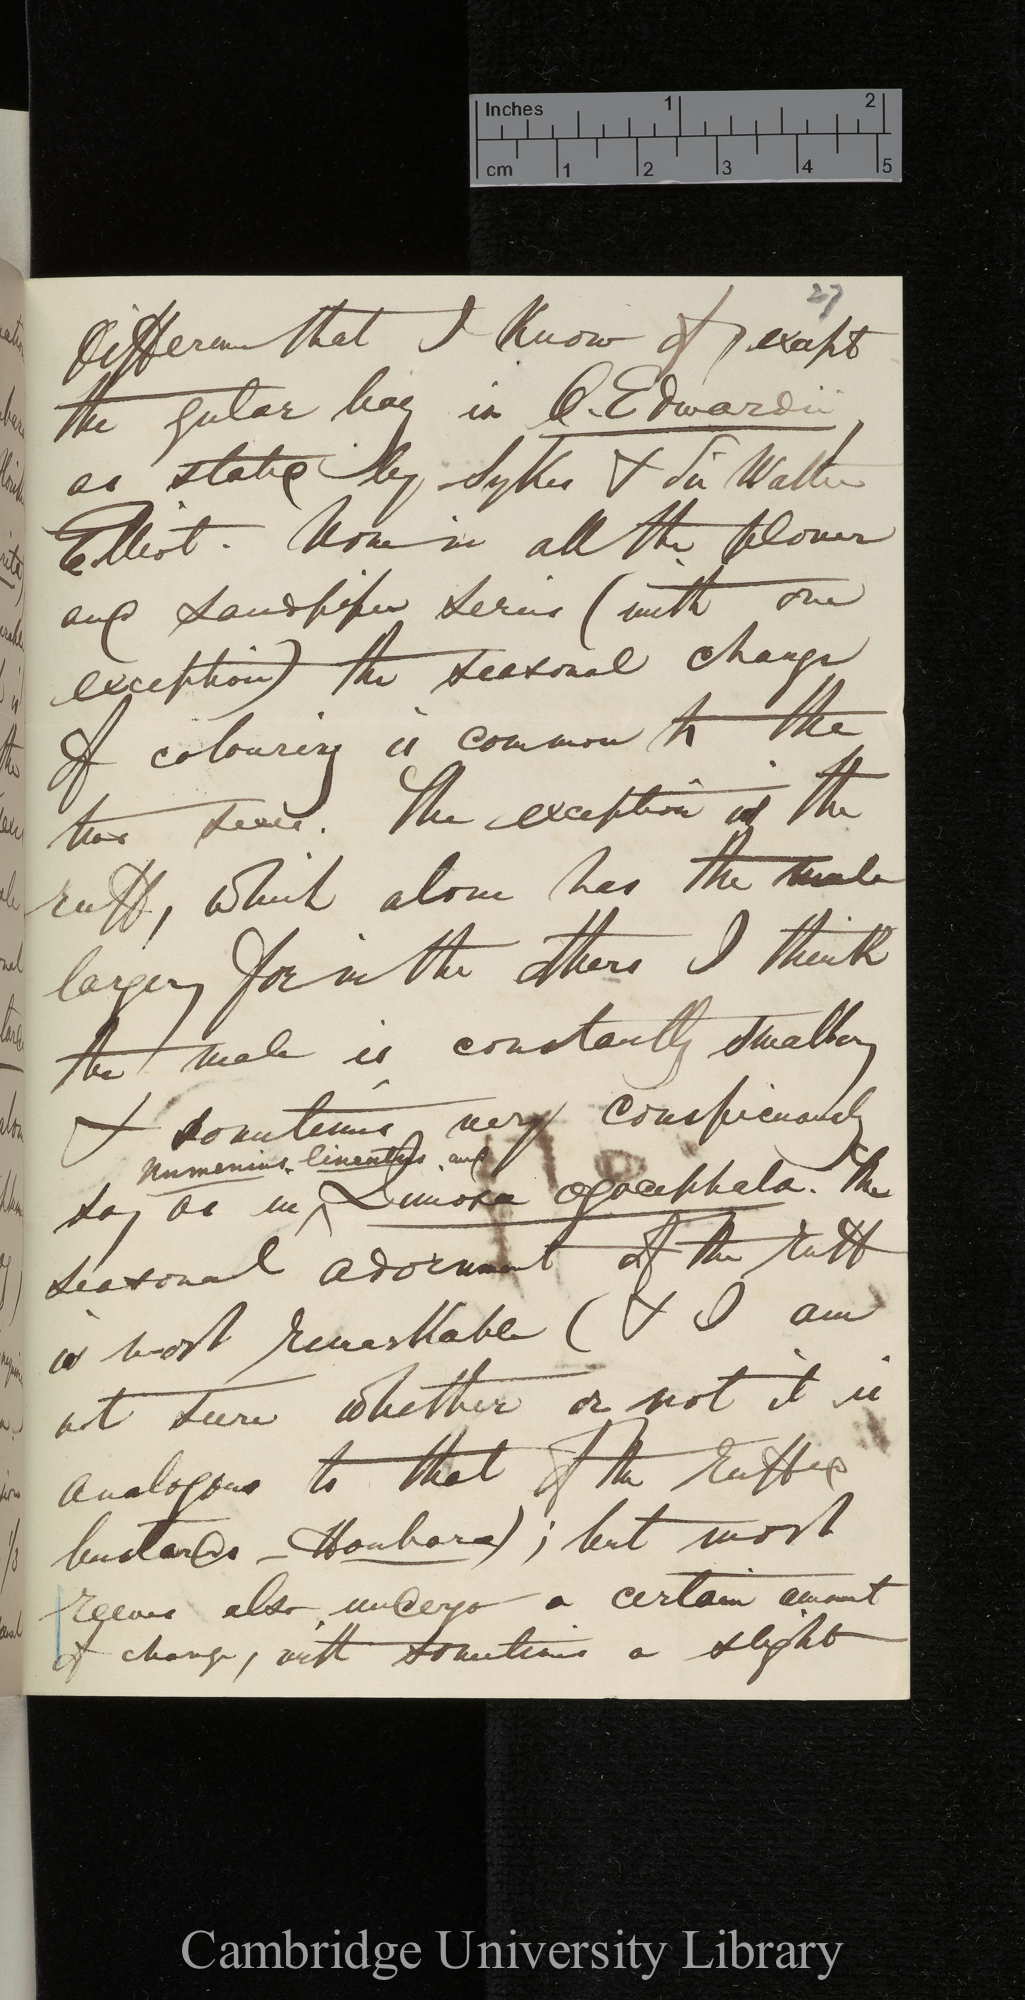 Inches 1 2
cm 1 2 3 4 5
27
difference that I know of, except
the gular bag in O. Edwardii,
as stated by Sykes & Sir Walter
Elliot. Now in all the plover
and sandpiper series (with one
exception) the seasonal change
of colouring is common to the
two sexes. The exception is the
ruff, which alone has the male
larger, for in the others I think
the male is constantly smaller,
& sometimes very conspicuously
Numenius lineatus, and
so, as in Limosa ægocephala. The
seasonal adornment of the ruff
is most remarkable (& I am
not sure whether or not it is
analogous to that of the ruffed
bustards – Houbara); but most
reeves also undergo a certain amount
of change, with sometimes a slight
Cambridge University Library